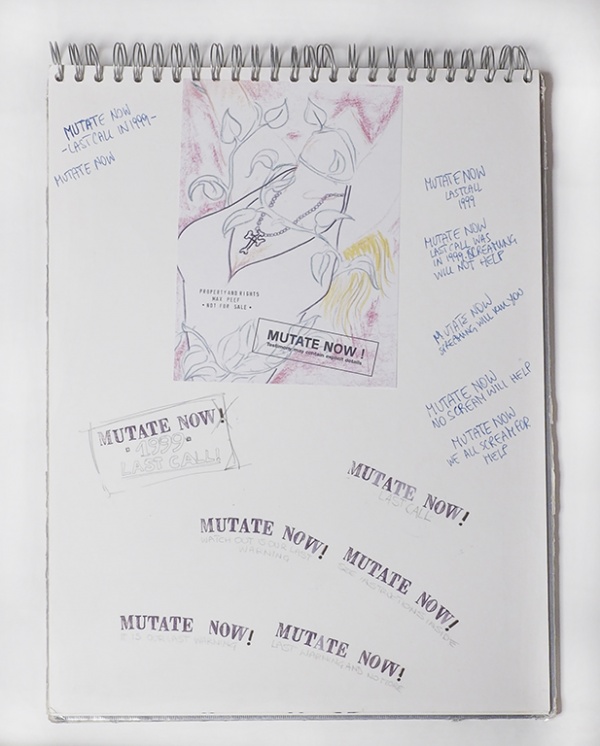 MUTATE NOW
-LAST CALL IN 1999-
MUTATE NOW
PROPERTY AND RIGHTS
MAX PEEF
• NOT FOR SALE •
MUTATE NOW !
Testimony may contain explicit details
MUTATE NOW
LAST CALL
1999
MUTATE NOW
LAST CALL WAS
IN 1999, SCREAMING
WILL NOT HELP
MUTATE NOW
SCREAMING WILL KILL YOU
MUTATE NOW
NO SCREAM WILL HELP
MUTATE NOW
WE ALL SCREAM FOR
HELP
MUTATE NOW!
• 1999 •
LAST CALL!
MUTATE NOW!
LAST CALL
MUTATE NOW!
WATCH OUT IS OUR LAST
WARNING
MUTATE NOW!
SEE INSTRUCTIONS
MUTATE NOW!
IT IS OUR LAST WARNING
MUTATE NOW!
LAST WARNING AND